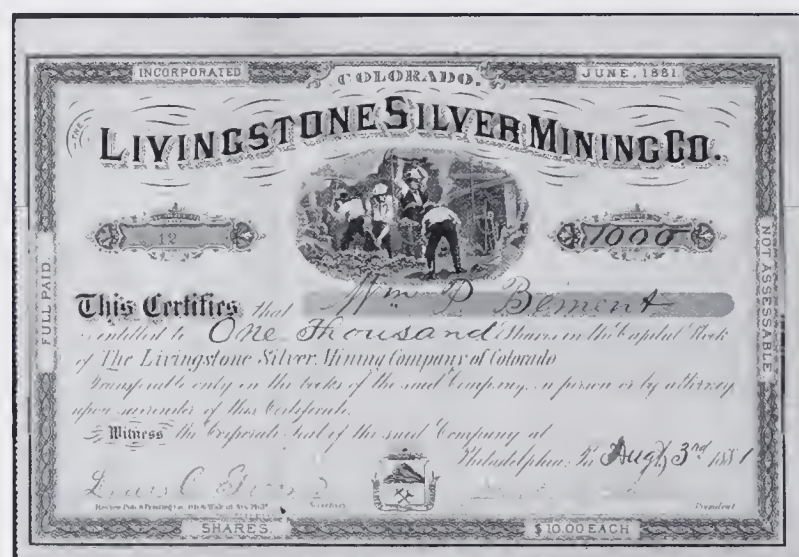 INCORPORATED COLORADO. JUNE, 1881.
THE
LIVINGSTONE SILVER MINING CO.
12 1000
FULL PAID.
NOT ASSESSABLE.
This Certifies that Wm. P Bement
entitled to One Thousand Shares in the Capital Stock
of The Livingstone Silver Mining Company of Colorado
Transferable only in the books of the said Company, in person or by attorney
upon surrender of this Certificate.
Witness the Corporate Seal of the said Company at
Philadelphia, Pa Augt 3rd 1881
Louis C
President
SHARES $10.00 EACH